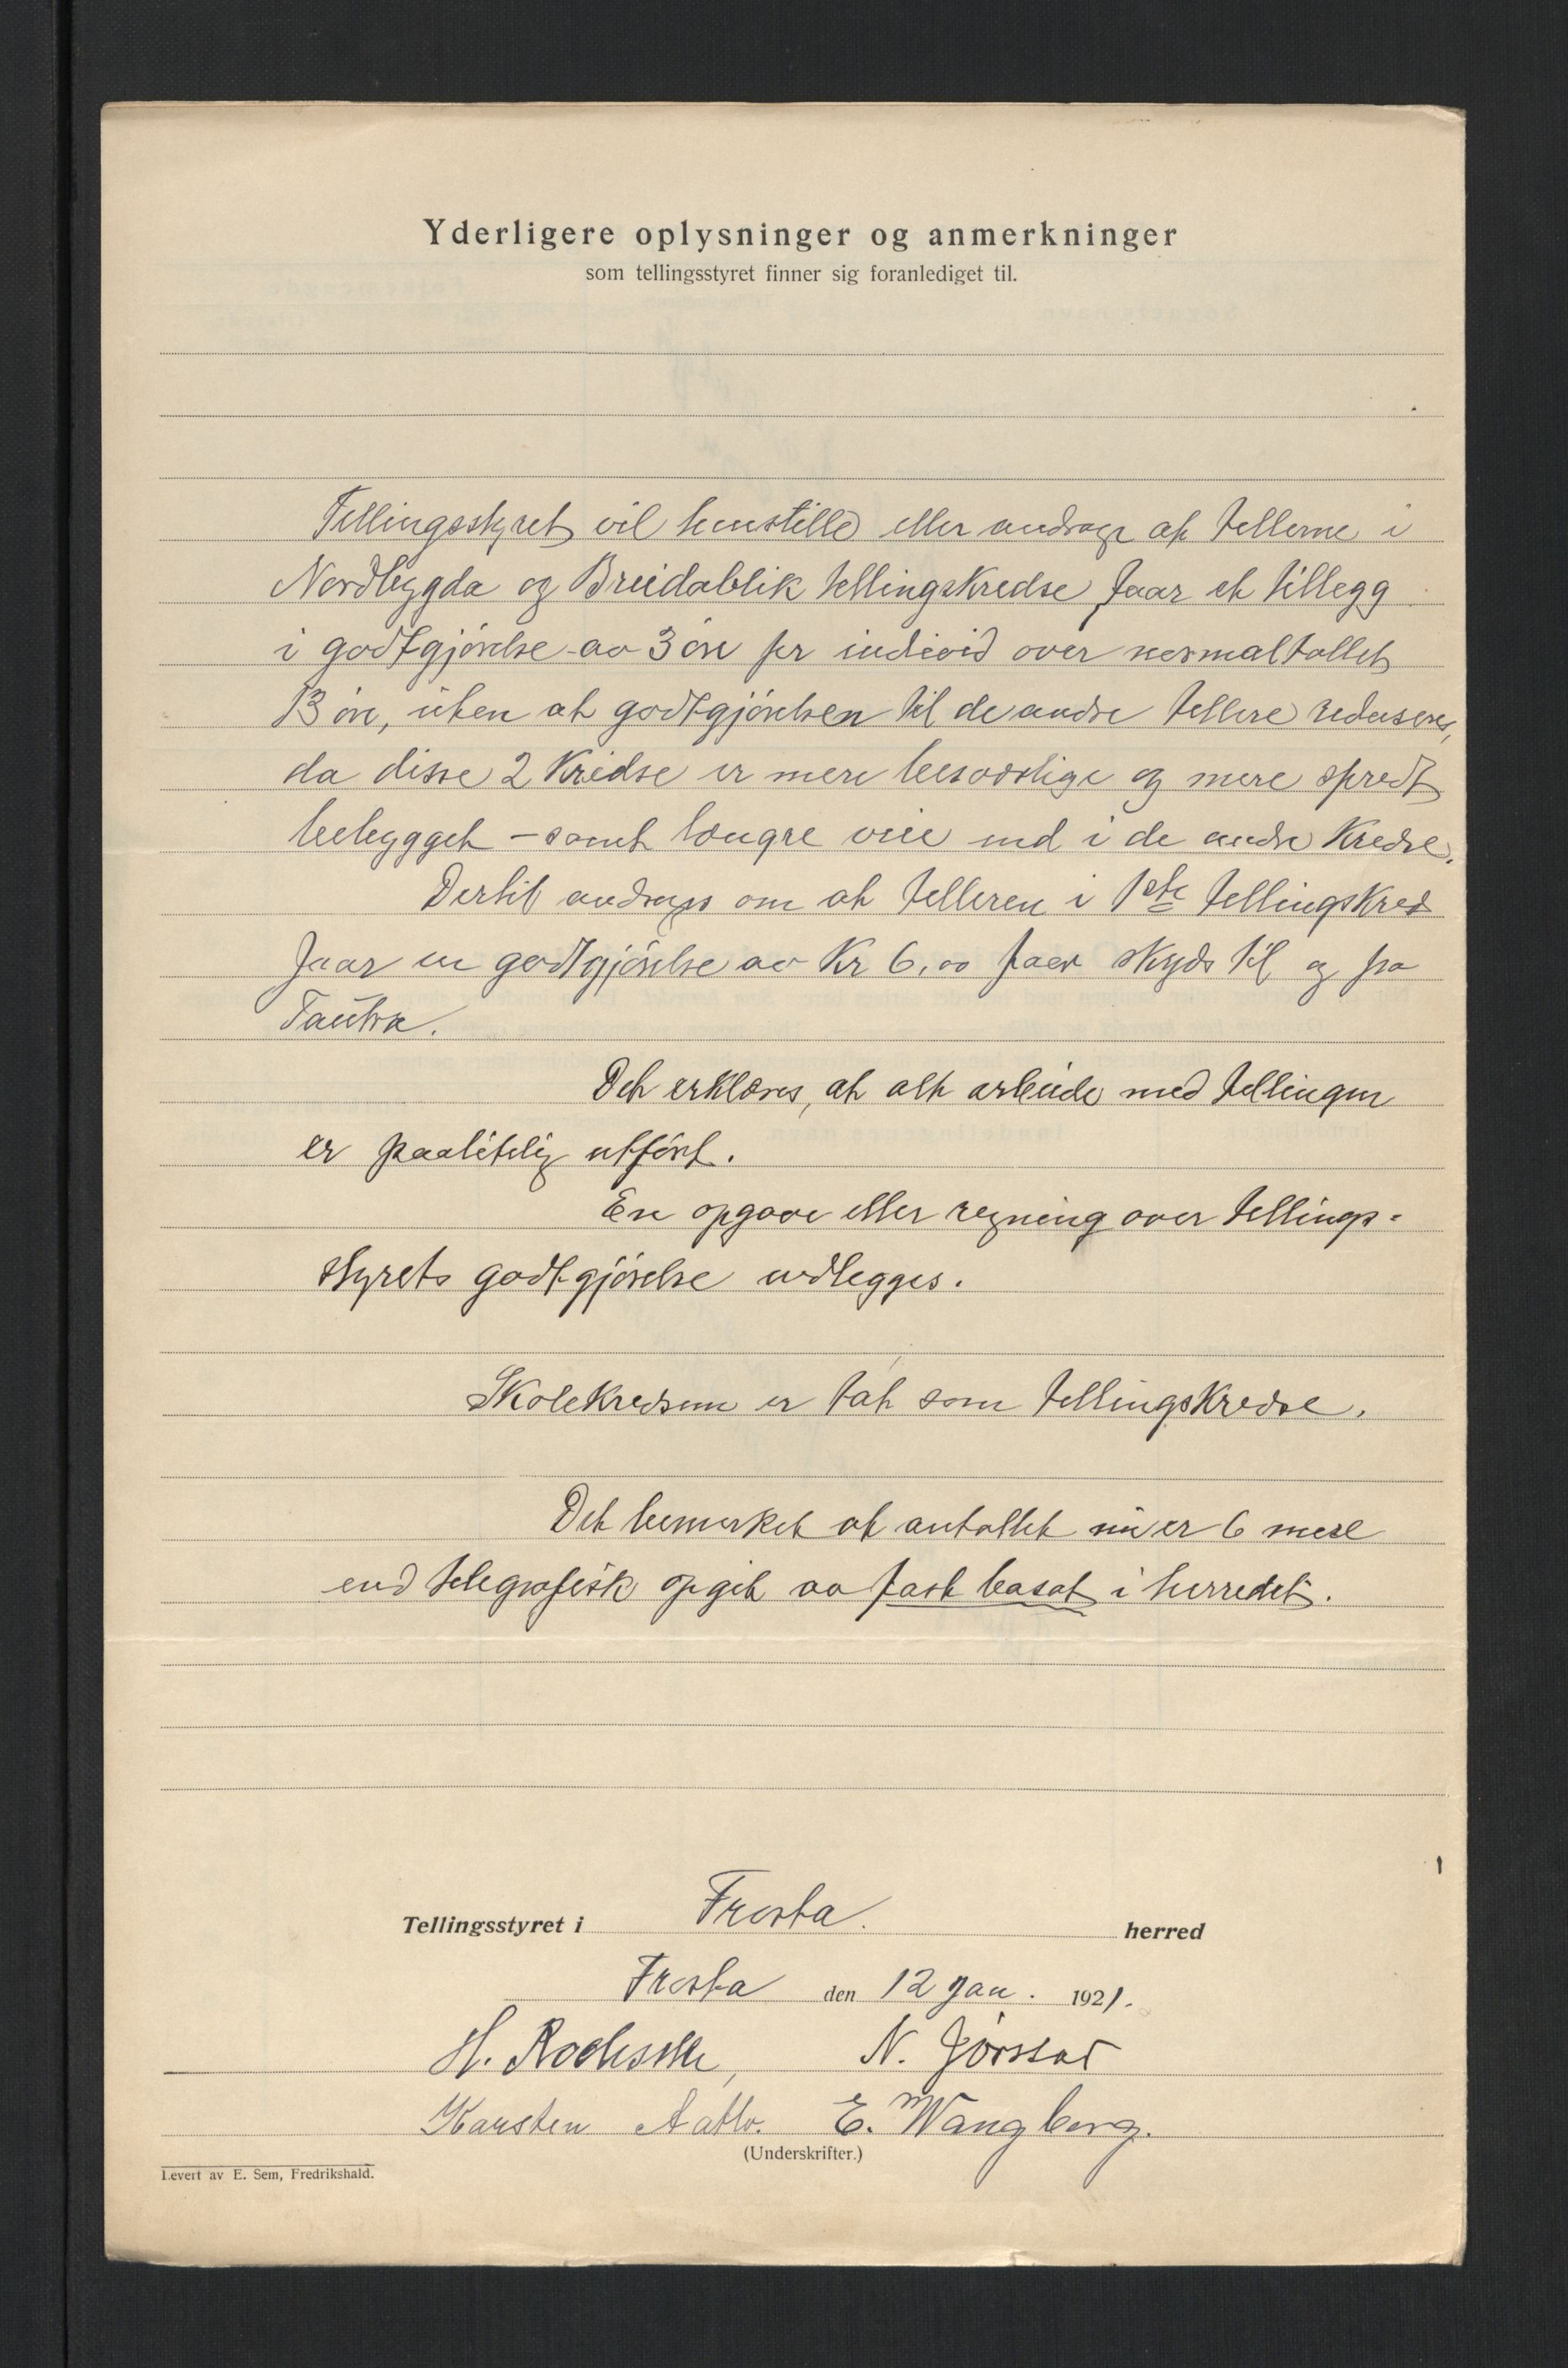 Yderligere oplysninger og anmerkninger
som tellingsstyret finner sig foranlediget til.
Tellingsstyret vil henstille eller andrage at tellerne i
Nordbygda og Breidablik tellingskredse faar et tillegg
i godtgjörelse av 3 öre pr individ over normaltallet
13 öre, uten at godtgjörelsen til de andre tellere reduseres,
da disse 2 kredse er mere besværlige og mere spredt
bebygget – samt længre veie end i de andre kredse.
Dertil andrages om at telleren i 1ste tellingskred
faar en godtgjörelse av Kr 6,00 for skyds til og fra
Tautra.
Det erklæres, at alt arbeide med tellingen
er paalitelig utfört.
En opgave eller regning over tellings-
styrets godtgjörelse vedlegges.
Skolekredsene er tat som tellingskredse.
Det bemerket at antallet nu er 6 mere
end telegrafisk opgit av fast bosat i herredet.
Tellingsstyret i Frosta. herred
Frosta den 12 Jan. 1921.
H. N.
Karsten E. Wangberg.
(Underskrifter.)
Levert av E. Sem, Fredrikshald.